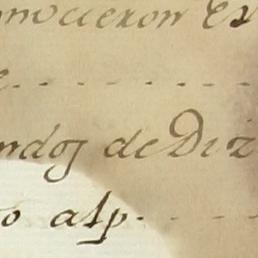 onocieron Ex
e . . - . - - . - -
ndos de Diz
o alp. - - -